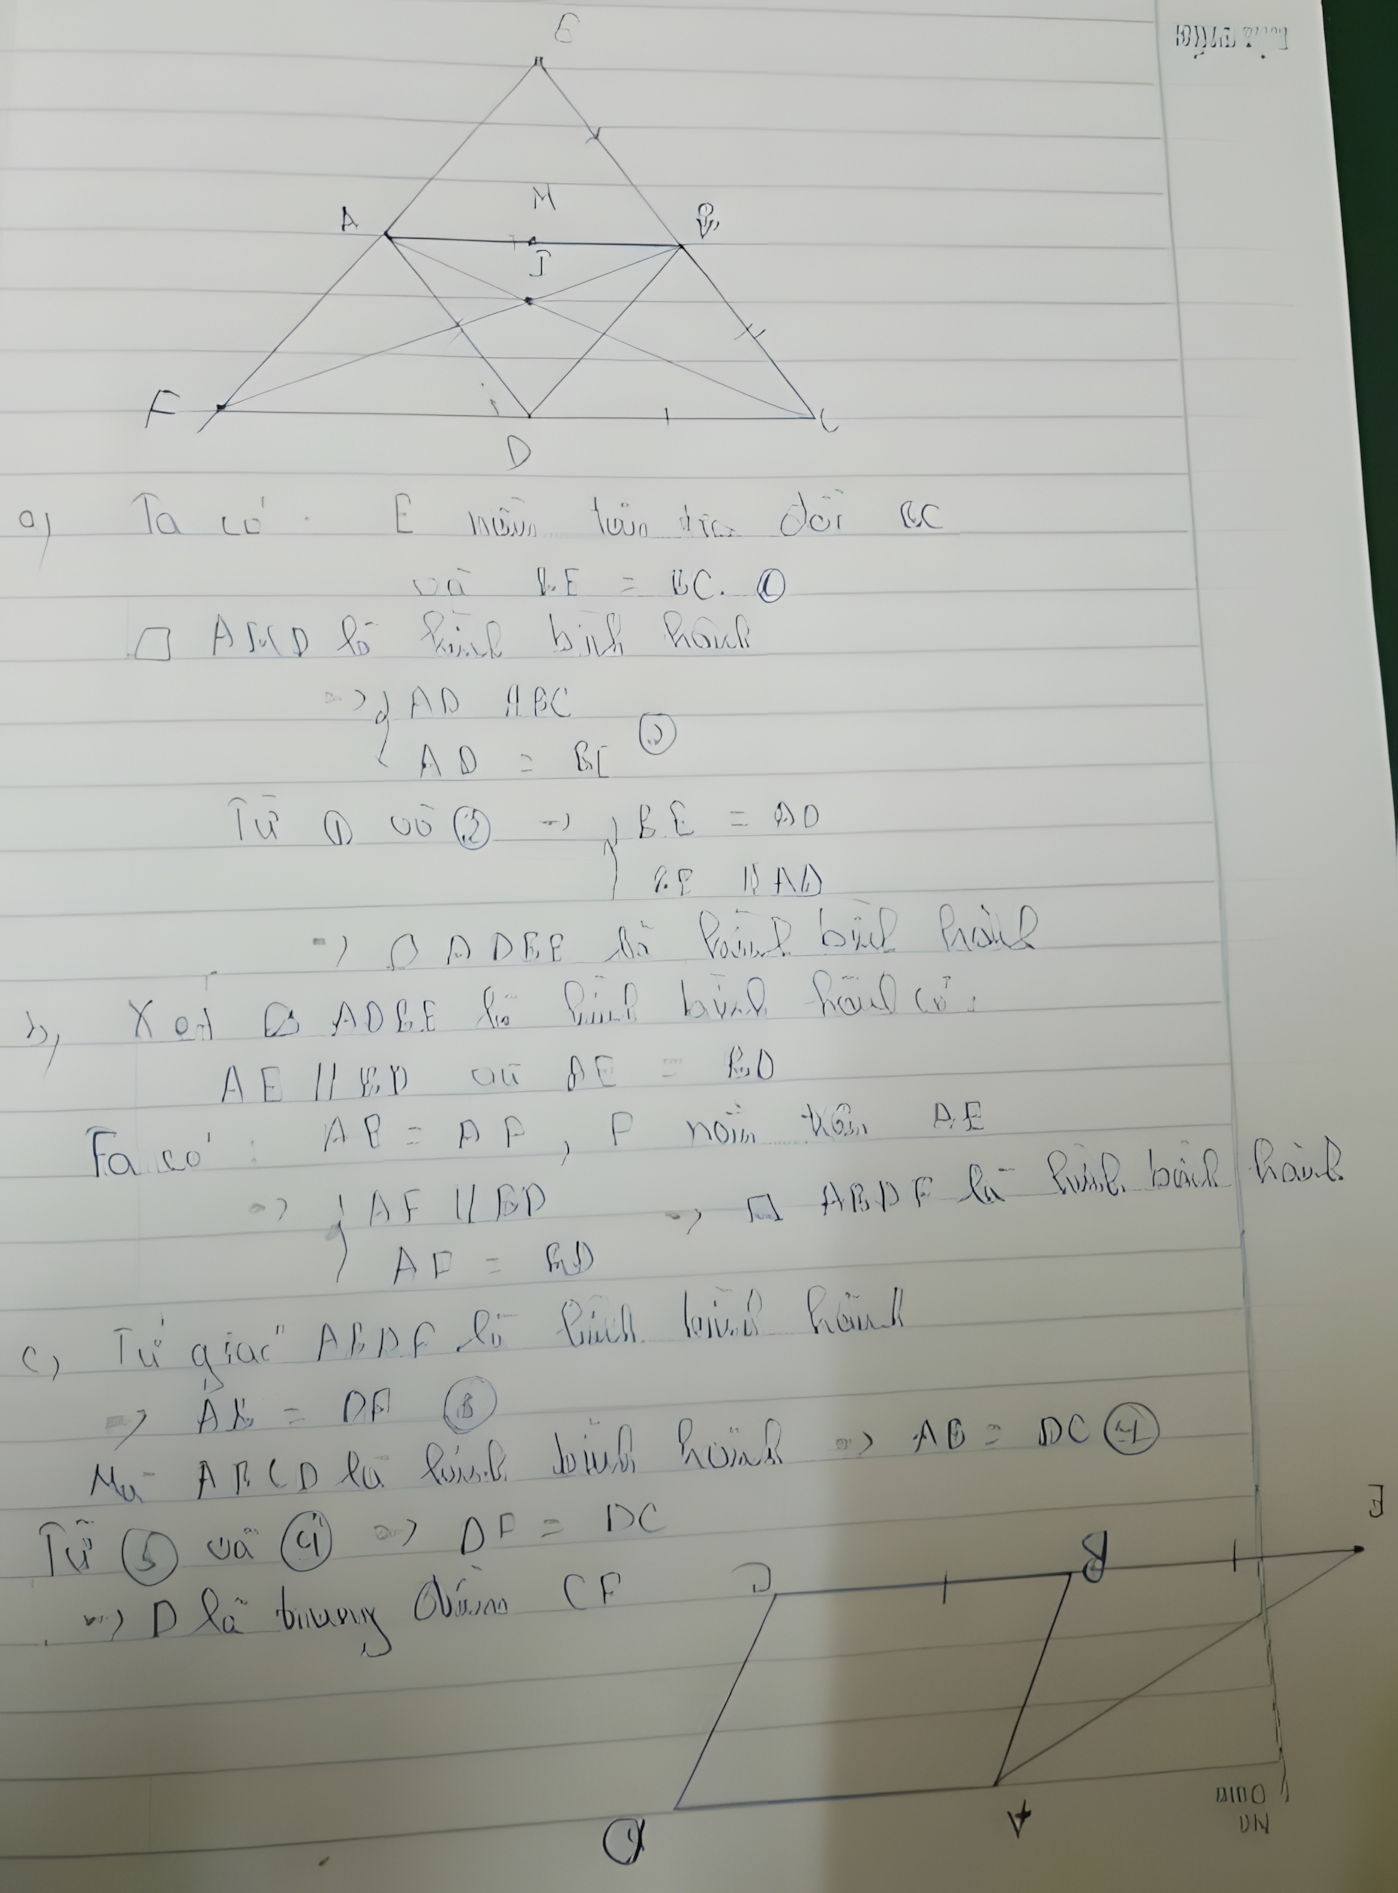 E
M
A
B
I
F
D
C
a) Ta có: E nằm trên tia đối BC
và BE = BC. ①
□ ABCD là hình bình hành
=> { AD // BC
AD = BC ②
Từ ① và ② => { BE = AD
BE // AD
=> □ ADBE là hình bình hành
b) Xét □ ADBE là hình bình hành có:
AE // BD và AE = BD
Ta có: AE = AF, F nằm trên AE
=> { AF // BD => □ ABDF là hình bình hành
AF = BD
c) Tứ giác ABDF là hình bình hành
=> AB = DF ③
Mà ABCD là hình bình hành => AB = DC ④
Từ ③ và ④ => DF = DC
=> D là trung điểm CF
E
B
C
A
D